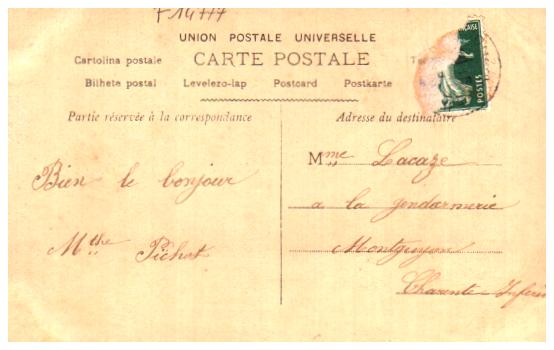 F 14777
UNION POSTALE UNIVERSELLE
Cartolina postale CARTE POSTALE
Bilhete postal Levelezo-lap Postcard Postkarte
POSTES
Partie réservée à la correspondance
Adresse du destinataire
Bien le bonjour
Mthe Pichat
Mme Lacaze
a la gendarmerie
Montguyon
Charente-Inférie